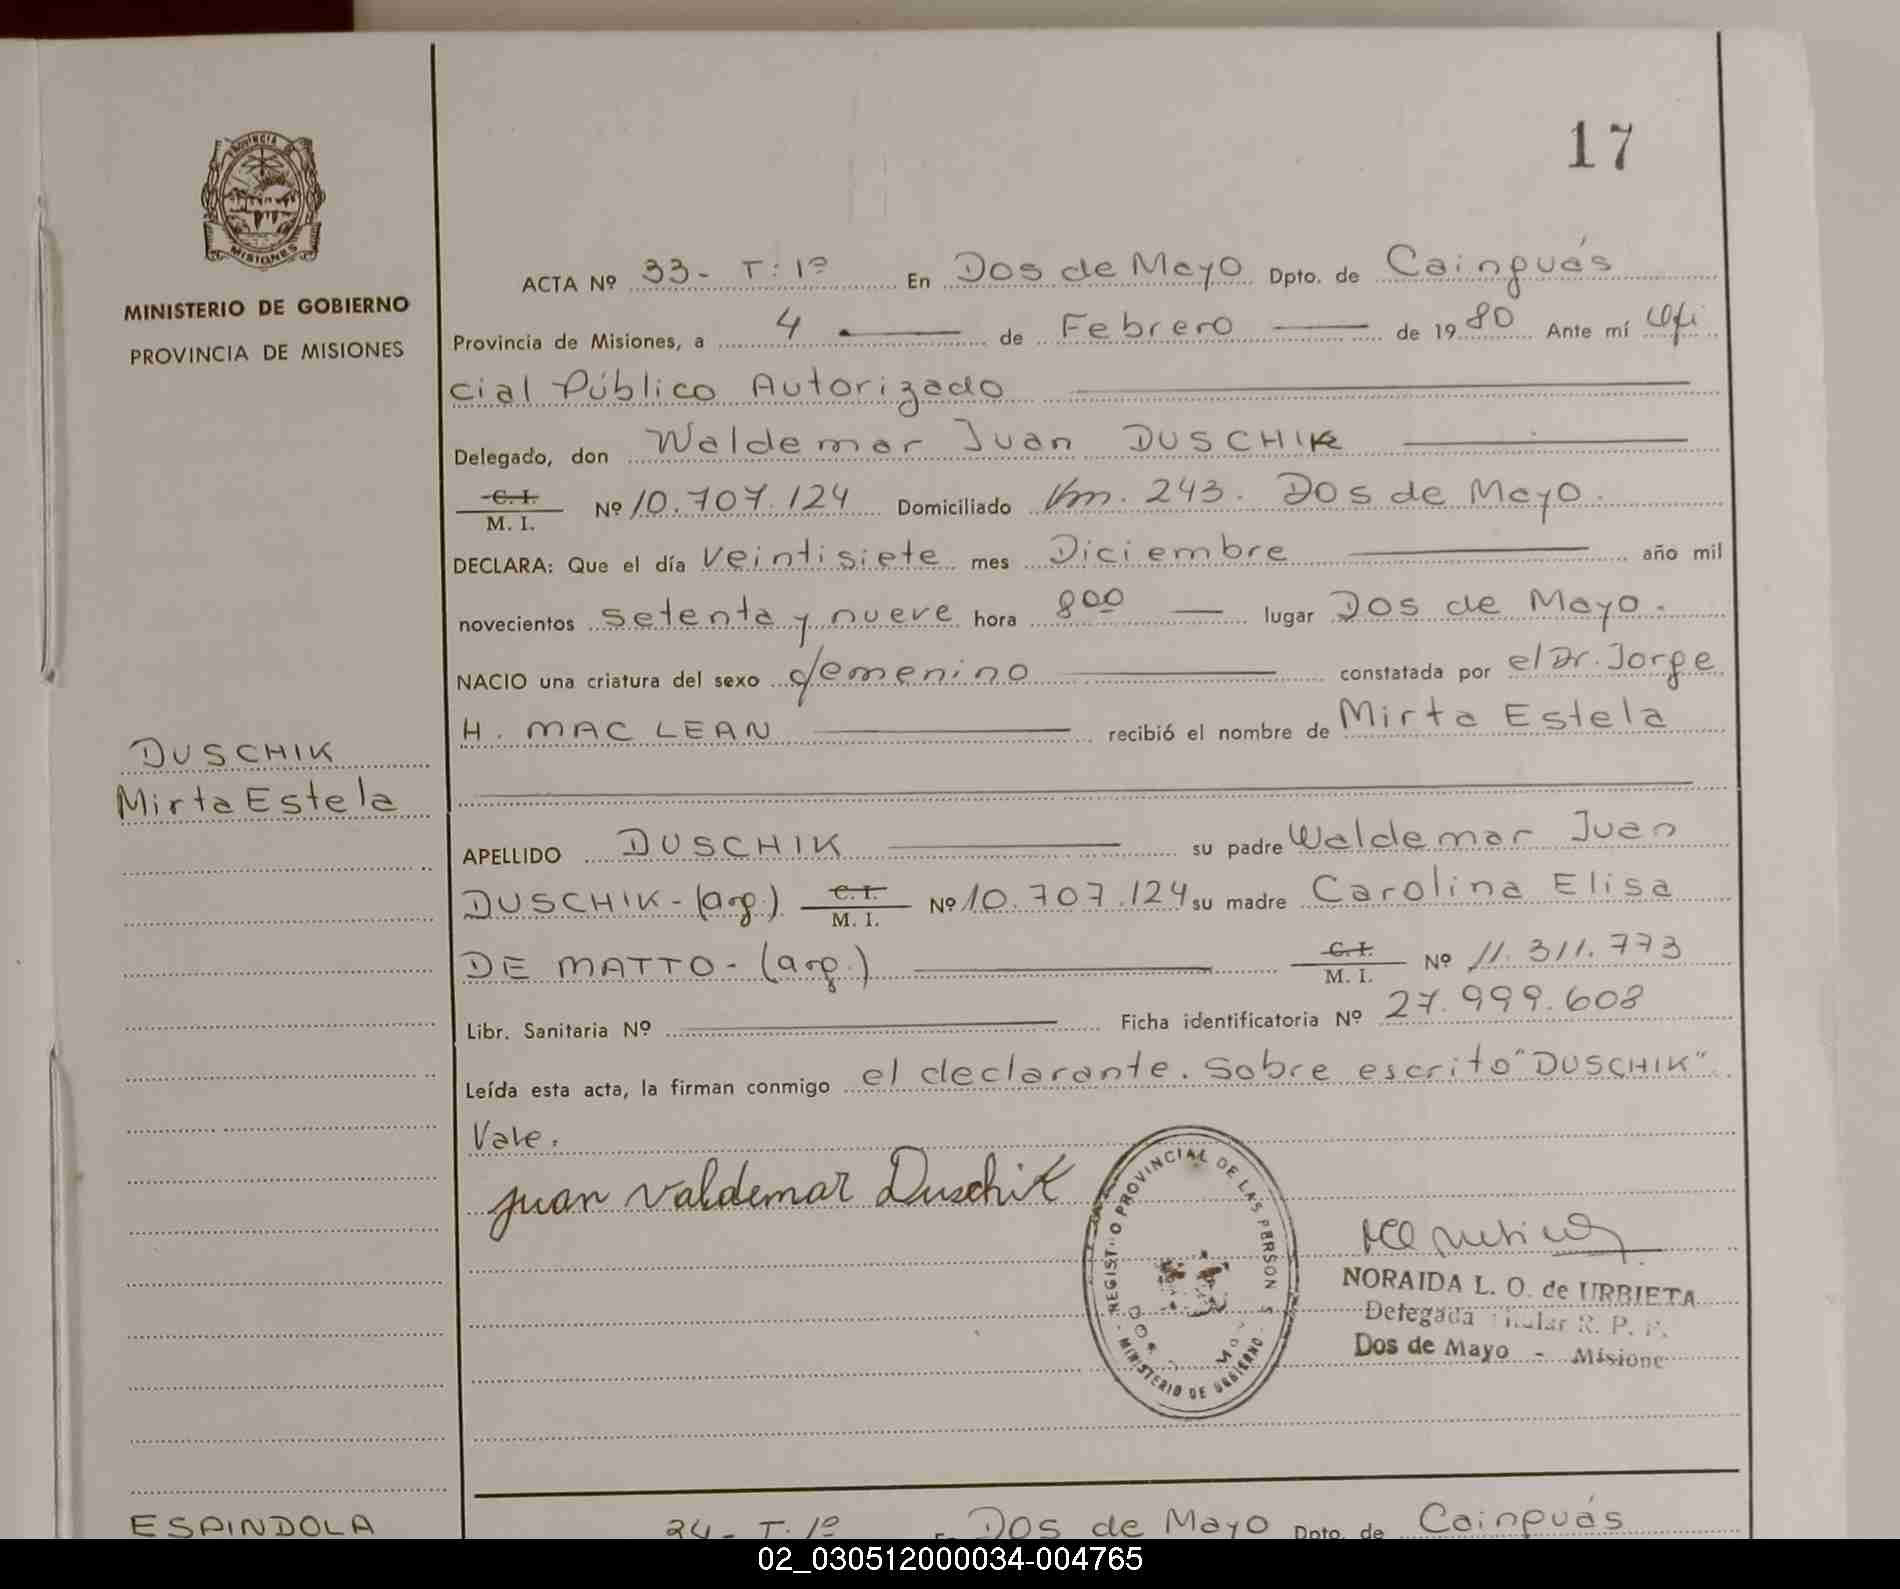 17
PROVINCIA DE
MISIONES
MINISTERIO DE GOBIERNO
PROVINCIA DE MISIONES
ACTA Nº 33- T: 1º En Dos de Mayo Dpto. de Cainguás
Provincia de Misiones, a 4 de Febrero de 1980 Ante mí Ofi
cial Público Autorizado
Delegado, don Waldemar Juan DUSCHIK
C. I.
M. I. Nº 10.707.124 Domiciliado Km. 243. Dos de Mayo.
DECLARA: Que el día veintisiete mes Diciembre año mil
novecientos setenta y nueve hora 8 00 lugar Dos de Mayo.
NACIO una criatura del sexo femenino constatada por el Dr. Jorge
H. MAC LEAN recibió el nombre de Mirta Estela
DUSCHIK
Mirta Estela
APELLIDO DUSCHIK su padre Waldemar Juan
DUSCHIK-(arg.) C. I. M. I. Nº 10.707.124 su madre Carolina Elisa
DE MATTO-(arg.) C. I. M. I. Nº 11.311.773
Libr. Sanitaria Nº Ficha identificatoria Nº 27.999.608
Leída esta acta, la firman conmigo el declarante. Sobre escrito "DUSCHIK"
Vale.
Juan Valdemar Duschik
REGISTRO PROVINCIAL DE LAS PERSON S
- MINISTERIO DE GOBIERNO -
DOS MAY
NORAIDA L. O. de URBIETA
Delegada Titular R. P. P.
Dos de Mayo - Misione
ESPINDOLA
34- T: 1º En Dos de Mayo Dpto. de Cainguás
02_030512000034-004765